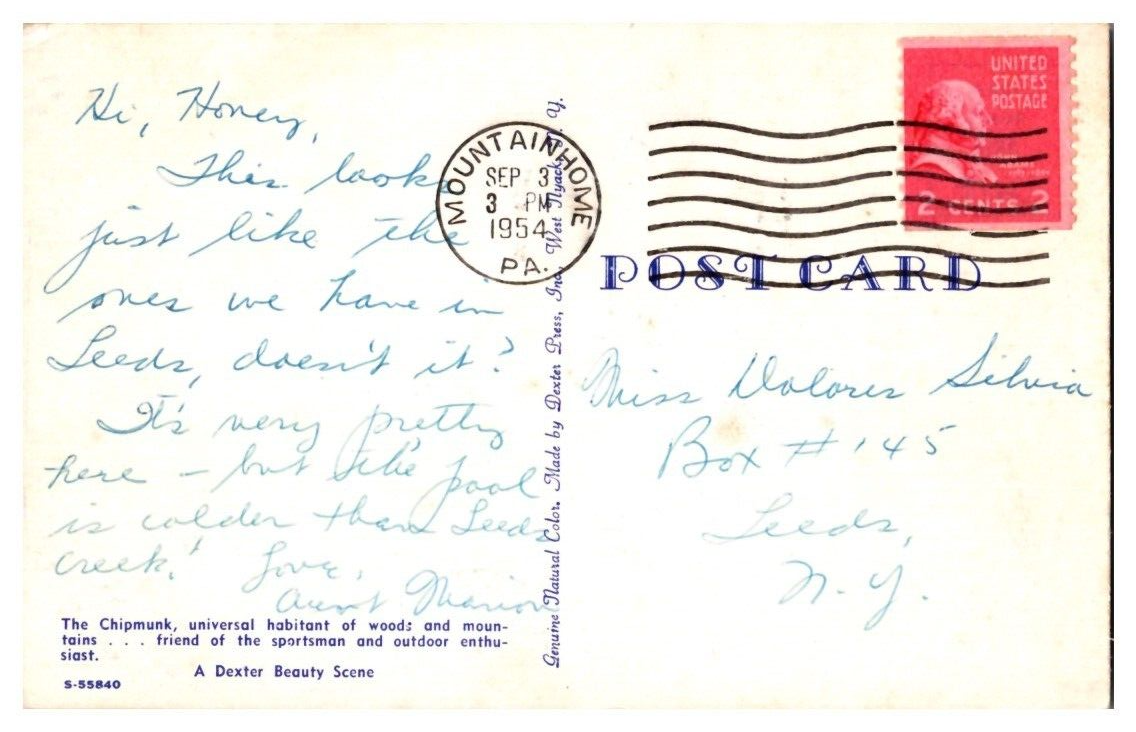 Hi, Honey,
This looks
just like the
ones we have in
Leeds, doesn't it?
It's very pretty
here – but the pool
is colder than Leeds
Creek! Love,
Aunt Marion
The Chipmunk, universal habitant of woods and moun-
tains . . . friend of the sportsman and outdoor enthu-
siast.
A Dexter Beauty Scene
S-55840
Genuine Natural Color. Made by Dexter Press, Inc. West Nyack, N. Y.
MOUNTAINHOME
SEP 3
3 PM
1954
PA.
UNITED
STATES
POSTAGE
2 CENTS 2
POST CARD
Miss Dolores Silvia
Box # 145
Leeds,
N. Y.